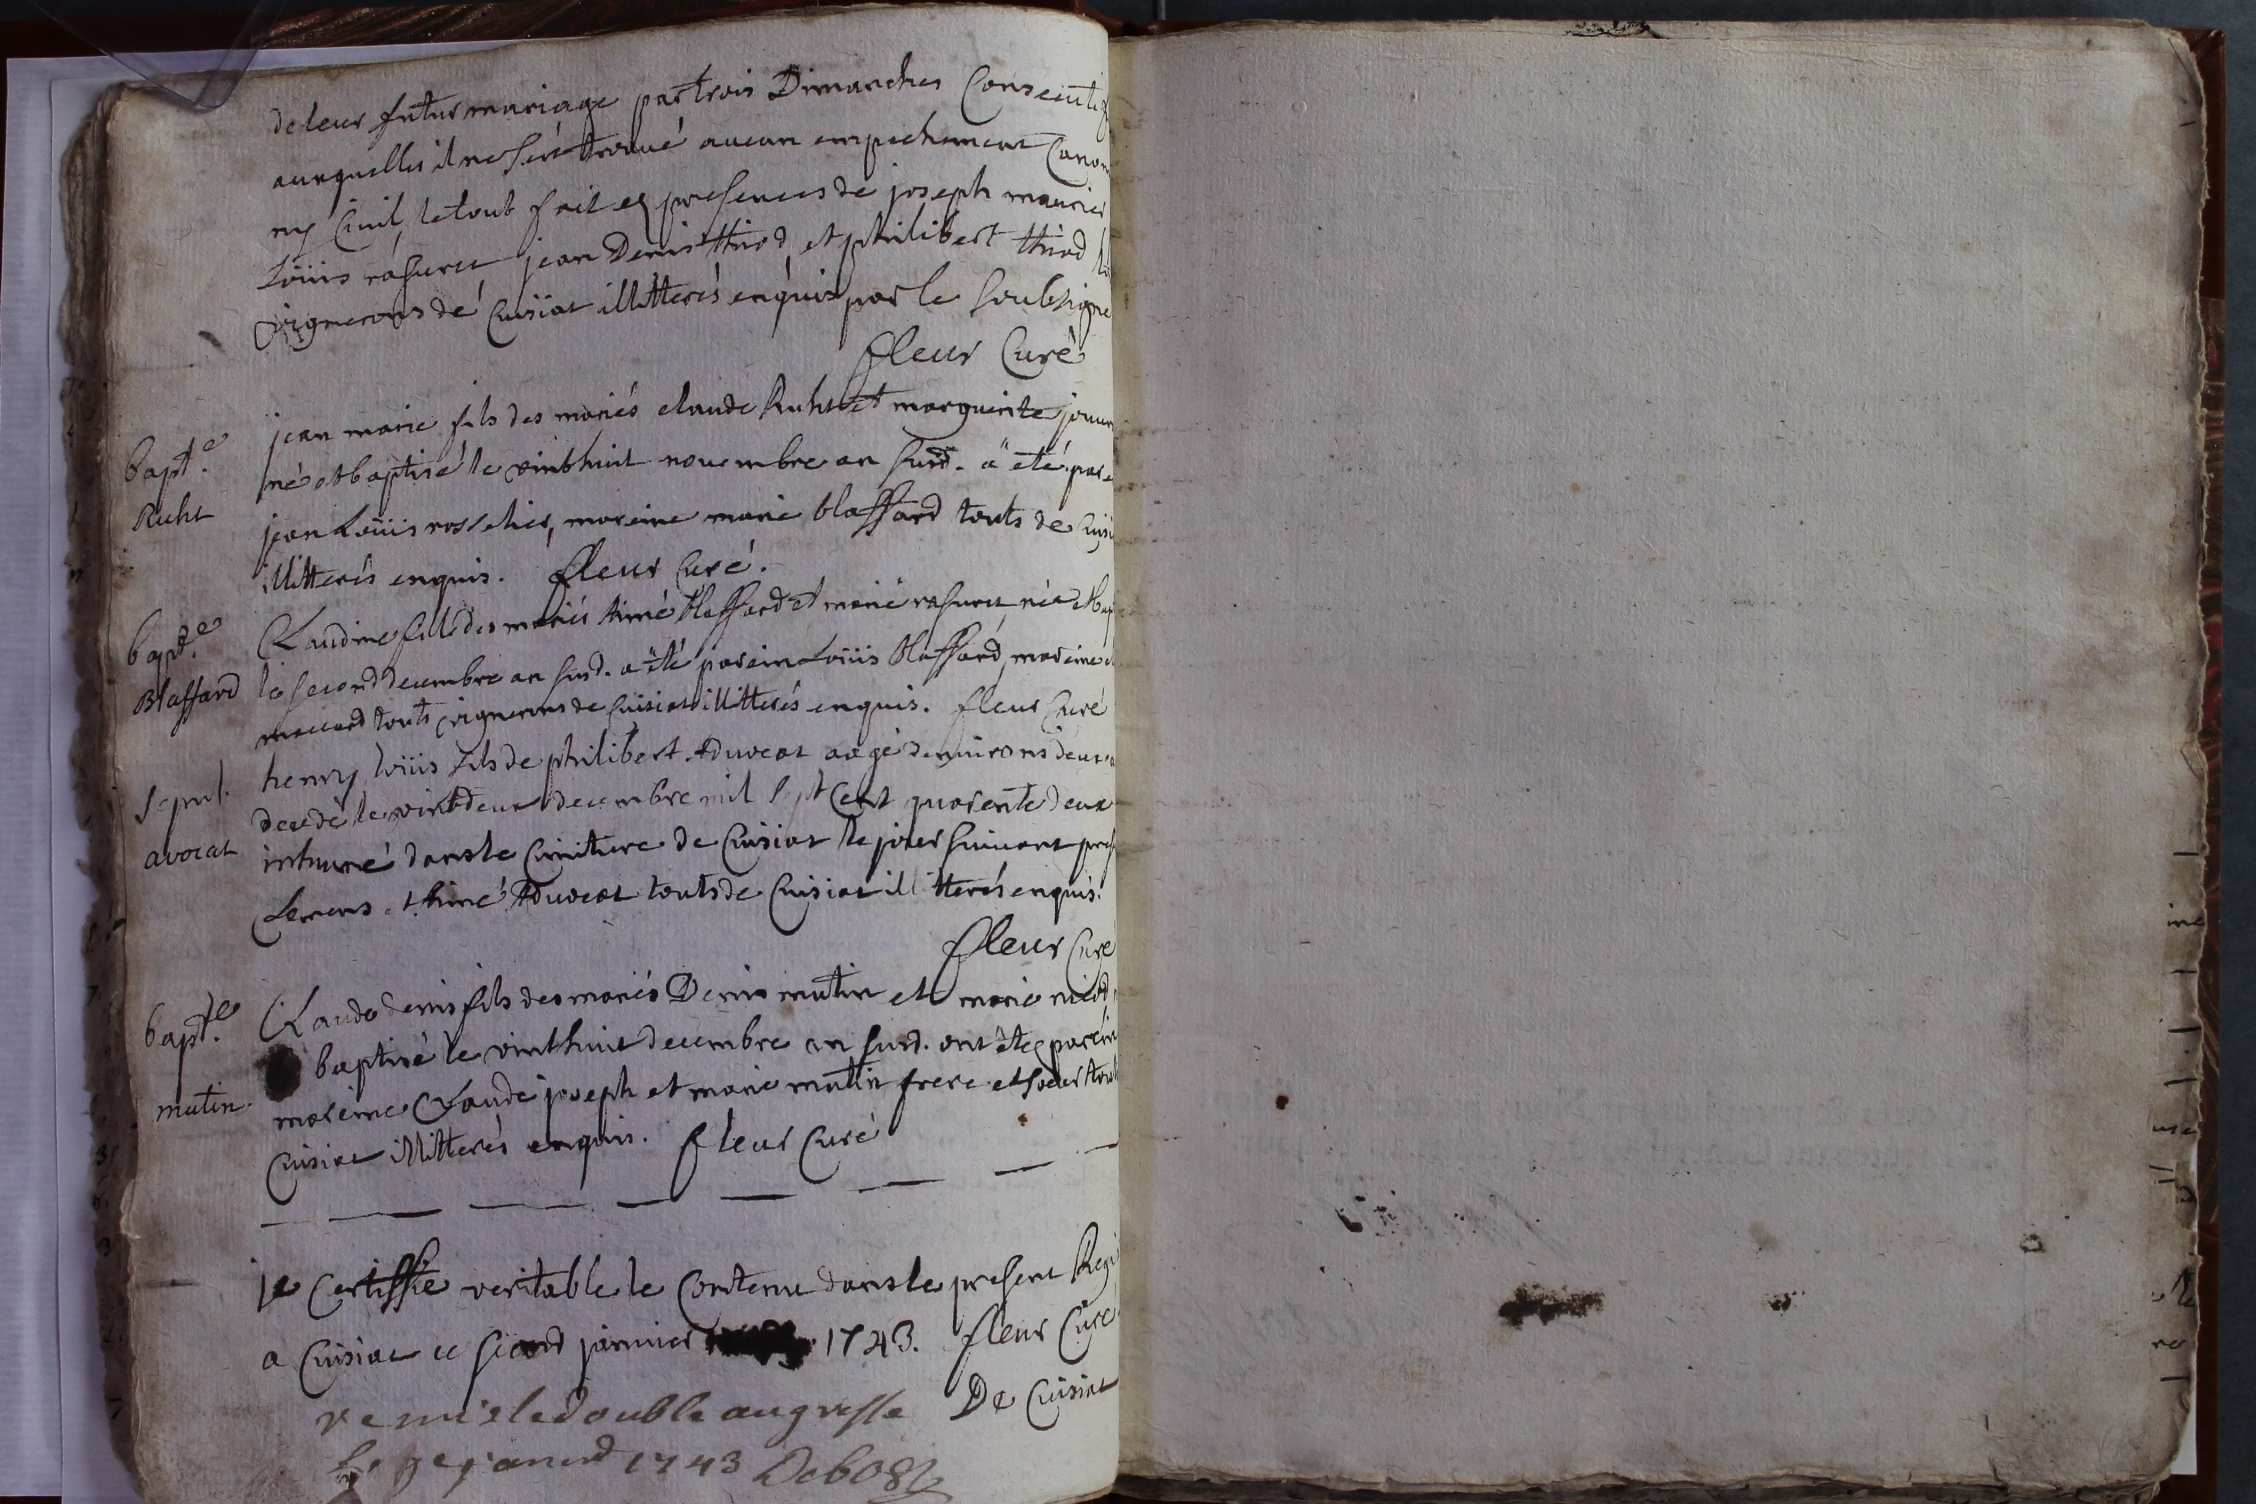 de leur futur mariage par trois Dimanches Consecutif
auxquelles il ne s'est trouvé aucun empechement Canon
ny Civil, le tout fait en presences de joseph maurier
Loüis rasurel jean Denis thiod, et philibert thiod
vignerons de Cuisiat illitterés enquis par le soubsigne
fleur Curé
bapt.e
Ruht
jean marie fils des mariés claude Ruht et marguerite
né et baptisé le vinthuit novembre an susd. a été par
jean Loüis rossetier, mareine marie blaffard touts de Cuisi
illitterés enquis. fleur Curé.
bapt.e
Blaffard
Claudine fille des mariés Aimé blaffard et marie rasurel née et bap
le second decembre an susd. a été parein Loüis blaffard, mareine
touts vignerons de Cuisiat illitterés enquis. fleur Curé
sepul.
avocat
henry loüis fils de philibert Aduocat aagé d'environs deux
decedé le vintdeux decembre mil sept Cent quarente deux
inhumé dans le Cimitiere de Cuisiat le jour suivant pres
et Aimé Aduocat touts de Cuisiat illitterés enquis.
fleur Curé
bapt.e
mutin.
Claude denis fils des mariés Denis mutin et marie niod
baptisé le vinthuit decembre an susd. ont été parein
mareine Claude joseph et marie mutin frere et soeur touts
Cuisiat illitterés enquis. fleur Curé
je Certiffie veritable le Contenu dans le present Regi
a Cuisiat ce second janvier 1743. fleur Curé
De Cuisiat
remis le double au greffe
le janvier 1743 Debost